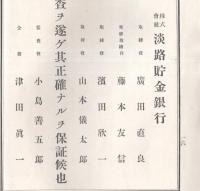 株式會社 淡路貯金銀行
取締役 廣田直良
專務取締役 藤本友信
取締役 濱田欣一
取締役 山本儀太郎
査ヲ遂ゲ其正確ナルヲ保証候也
監査役 小島善五郎
仝 津田眞一